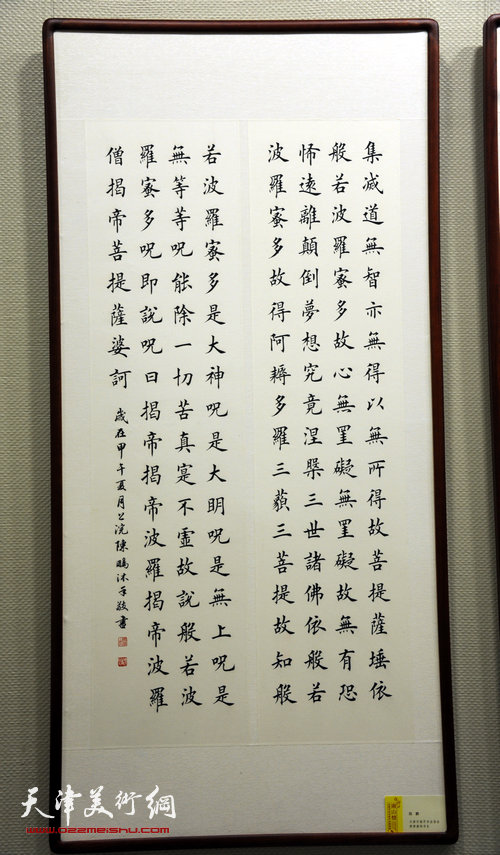 集滅道無智亦無得以無所得故菩提薩埵依
般若波羅蜜多故心無罣礙無罣礙故無有恐
怖遠離顛倒夢想究竟涅槃三世諸佛依般若
波羅蜜多故得阿耨多羅三藐三菩提故知般
若波羅蜜多是大神呪是大明呪是無上呪是
無等等呪能除一切苦真寔不虛故說般若波
羅蜜多呪即說呪曰揭帝揭帝波羅揭帝波羅
僧揭帝菩提薩婆訶
歲在甲午夏月浣陳鵬沐手敬書
天津美術網
www.022meishu.com